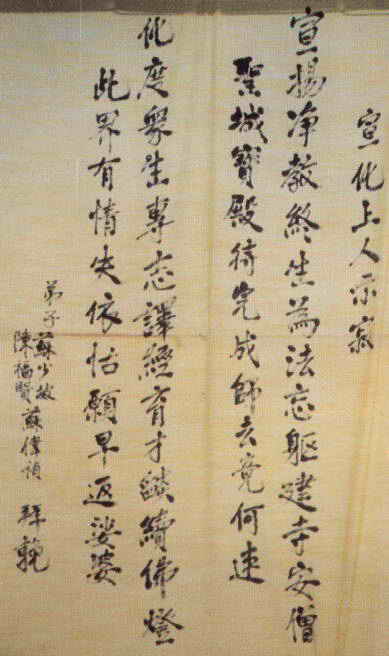 宣化上人示寂
宣揚净教終生為法忘軀建寺安僧
聖城寶殿待完成師去竟何速
化度眾生專志譯經育才繼續佛燈
此界有情失依怙願早返娑婆
弟子 蘇少
陳 賢 蘇偉 拜輓